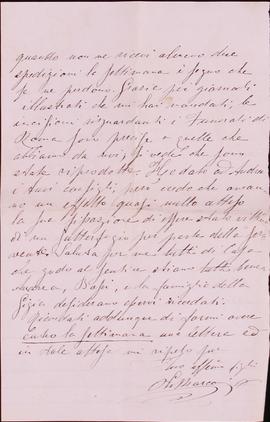 quando non ne ricevi almeno due
spedizioni la settimana è segno che
se ne perdono. Grazie pei giornali
illustrati che mi hai mandati, le
incisioni risguardanti i Funerali di
Roma sono precise a quelle che
abbiamo da noi, si vede che sono
state riprodotte. Ho dato ad Andrea
i tuoi consigli, però credo che avran
no un effetto quasi nullo atteso
la sua
di un per parte della
Saluta per me tutti di Casa
che godo al sentire stiano tutti bene
Andrea, Papà, e la famiglia della
Gigia desiderano esservi ricordati.
Ricordati addunque di farmi avere
entro la settimana una lettera ed
in tale attesa mi ripeto pel
tuo